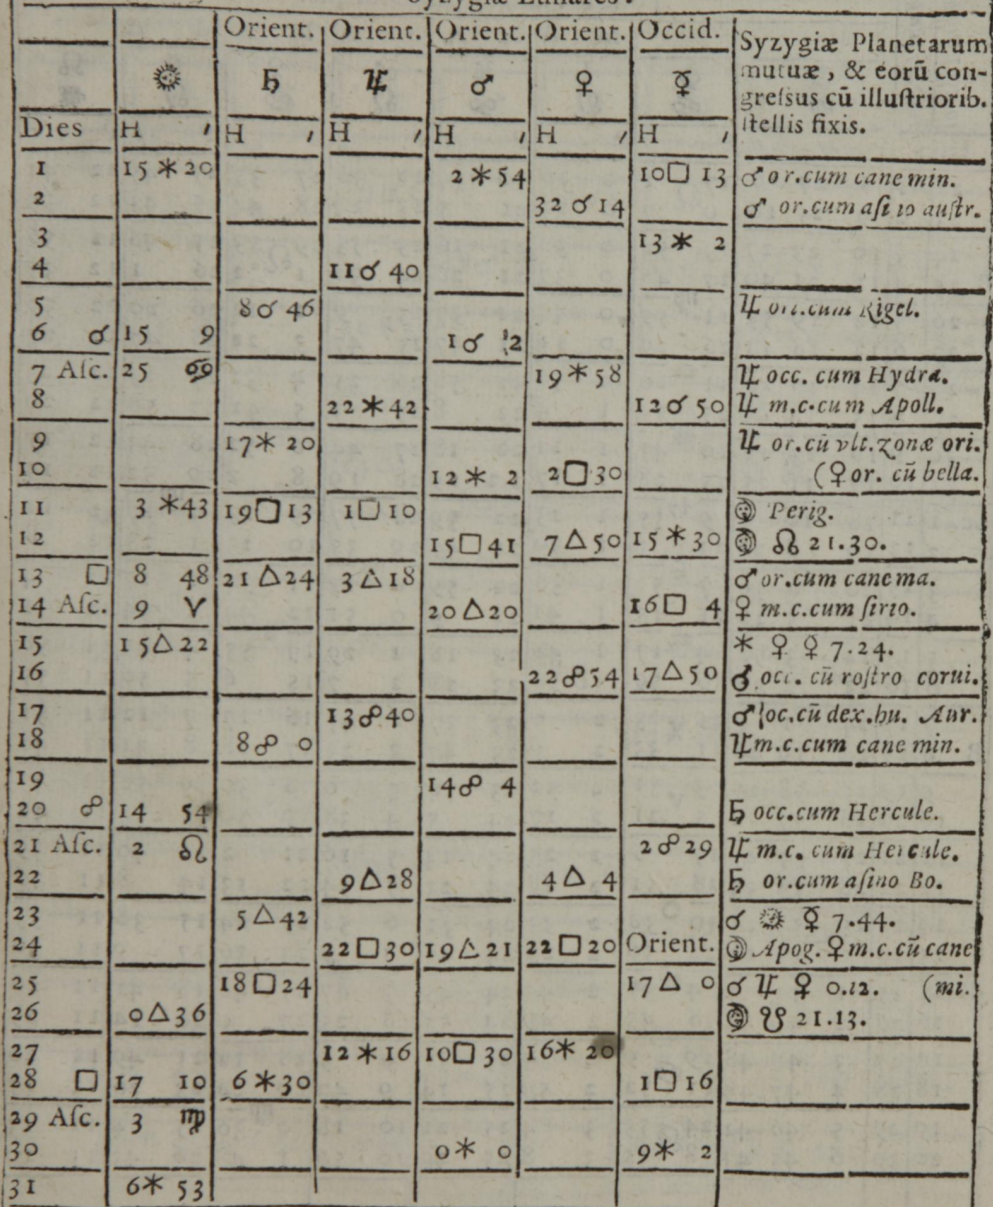 Syzygiæ Lunares.
Orient. Orient. Orient. Orient. Occid. Syzygiæ Planetarum
☉ ♄ ♃ ♂ ♀ ☿ mutuæ, & eorū con-
greſsus cū illuſtriorib.
Dies H ′ H ′ H ′ H ′ H ′ H ′ ſtellis fixis.
1 15 ⚹ 20 2 ⚹ 54 10 □ 13 ♂ or.cum cane min.
2 32 ☌ 14 ♂ or.cum aſi 10 auſtr.
3 13 ⚹ 2
4 11 ☌ 40
5 8 ☌ 46 ♃ cum Rigel.
6 ☌ 15 9 1 ☌ 2
7 Aſc. 25 ♋ 19 ⚹ 58 ♃ occ. cum Hydra.
8 22 ⚹ 42 12 ☌ 50 ♃ m.c.cum Apoll.
9 17 ⚹ 20 ♃ or.cū vlt.zonæ ori.
10 12 ⚹ 2 2 □ 30 (♀ or. cū bella.
11 3 ⚹ 43 19 □ 13 1 □ 10 ☽ Perig.
12 15 □ 41 7 △ 50 15 ⚹ 30 ☽ ☊ 21.30.
13 □ 8 48 21 △ 24 3 △ 18 ♂ or.cum cane ma.
14 Aſc. 9 ♈ 20 △ 20 16 □ 4 ♀ m.c.cum ſirio.
15 15 △ 22 ⚹ ♀ ☿ 7.24.
16 22 ☍ 54 17 △ 50 ♂ occ. cū roſtro corui.
17 13 ☍ 40 ♂ oc.cū dex.hu. Aur.
18 8 ☍ 0 ♃ m.c.cum cane min.
19 14 ☍ 4
20 ☍ 14 54 ♄ occ.cum Hercule.
21 Aſc. 2 ♌ 2 ☍ 29 ♃ m.c. cum Hercule.
22 9 △ 28 4 △ 4 ♄ or.cum aſino Bo.
23 5 △ 42 ☌ ☉ ☿ 7.44.
24 22 □ 30 19 △ 21 22 □ 20 Orient. ☽ Apog. ♀ m.c.cū cane
25 18 □ 24 17 △ 0 ☌ ♃ ♀ 0.12. (mi.
26 0 △ 36 ☽ ☋ 21.13.
27 12 ⚹ 16 10 □ 30 16 ⚹ 20
28 □ 17 10 6 ⚹ 30 1 □ 16
29 Aſc. 3 ♍
30 0 ⚹ 0 9 ⚹ 2
31 6 ⚹ 53